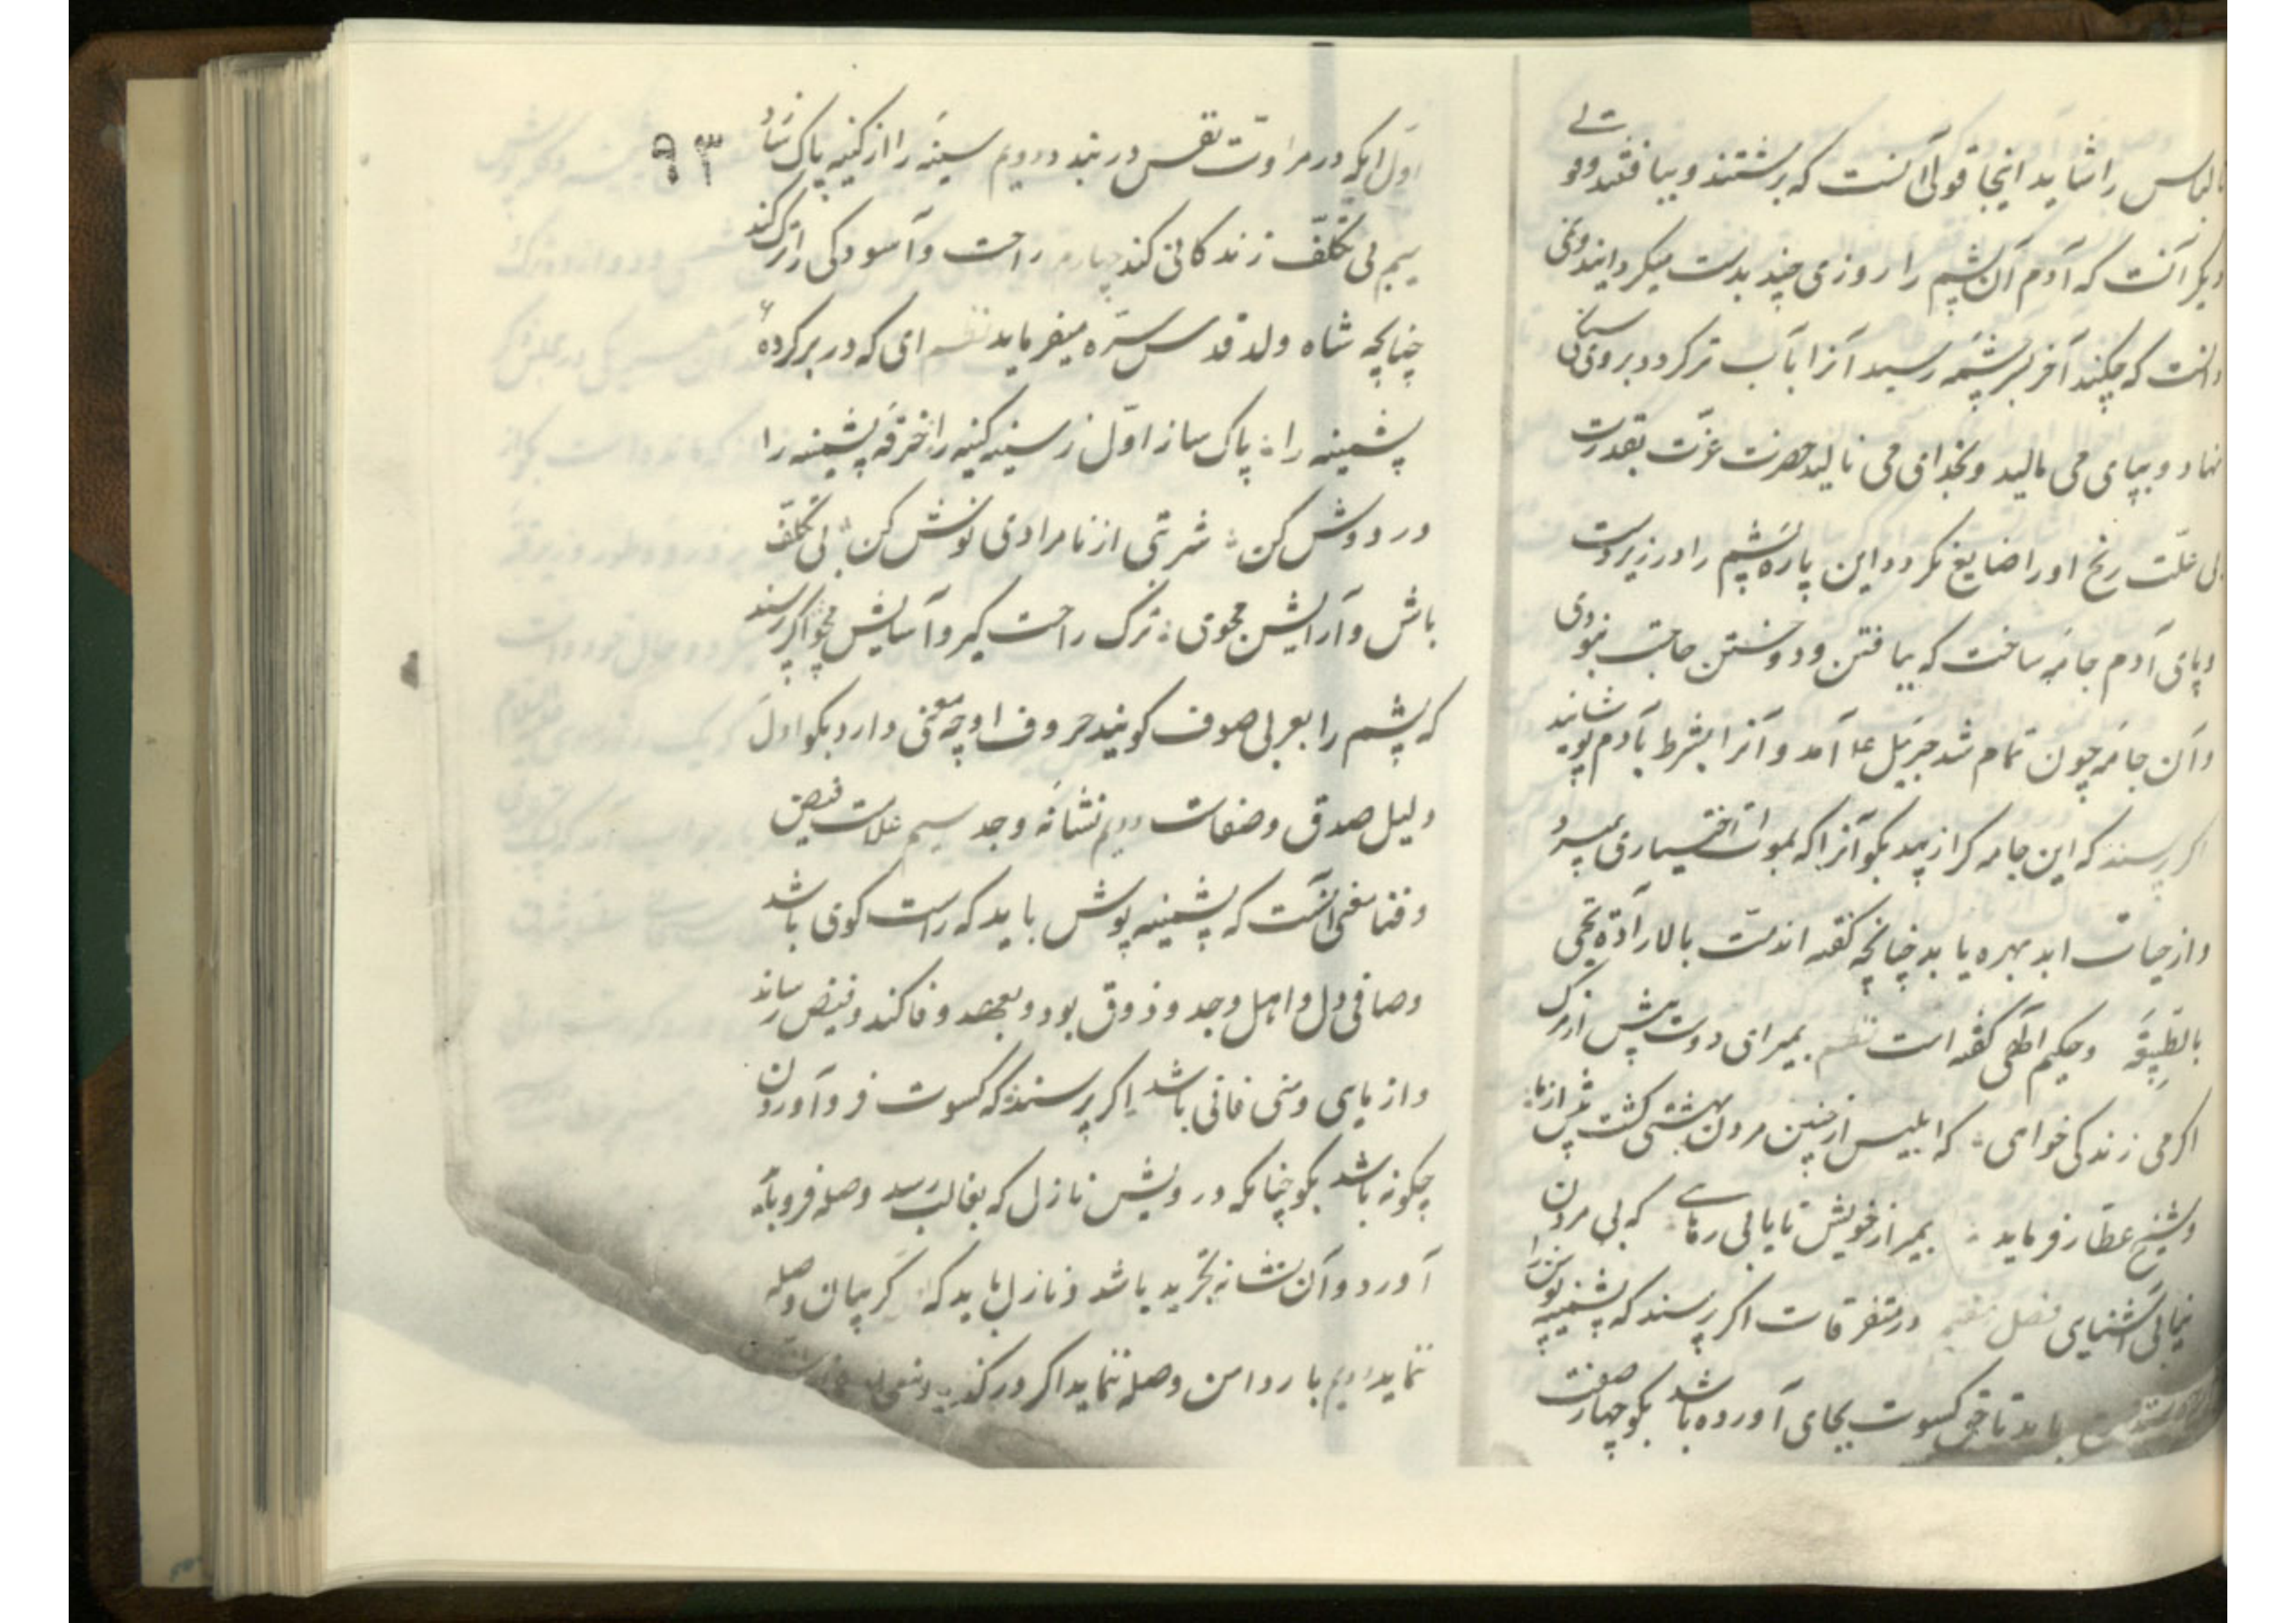 لباس را شاید اینجا قولی آنست که برشتند و ببافتند و قولی
دیگر آنست که آدم آن پشم را روزی چند بدست میکردانید و نمی
دانست که چکند آخر بسر چشمه رسید آنرا بآب تر کرد و بر روی سنگی
نهاد و بپای می مالید و بخدای می نالید حضرت عزّت بقدرت
بی علّت رنج او را ضایع نکرد و این پاره پشم را در زیر دست
و پای آدم جامه ساخت که ببافتن و دوختن حاجت نبودی
و آن جامه چون تمام شد جبرئیل ع آمد و آنرا بشرط بآدم پوشانید
اکر پرسند که این جامه کرا زیبد بکو آنرا که بموت اختیاری بمیرد
و از حیات ابد بهره یابد چنانچه کفته اند مت بالارادة تحیی
بالطبیعة و حکیم الهی کفته است نظم بمیر ای دوست پیش از مرک
اکر می زندکی خواهی که ابلیس از چنین مردن بهشتی کشت پیش از ما
و شیخ عطّار فرماید بمیر از خویش تا یابی رهائی که بی مردن
نیابی آشنایی فصل در متفرقات اکر پرسند که پشمینه پوش را
باید تا حق کسوت بجای آورده باشد بکو چهار صفت
۹۳
اوّل آنکه در مراوت نفس در بندد دویم سینه را از کینه پاک سازد
سیم بی تکلّف زندکانی کند چهارم راحت و آسودکی را ترک کند
چنانچه شاه ولد قدس سرّه میفرماید نظم ای که در بر کرده
پشمینه را پاک ساز اوّل ز سینه کینه را خرقه پشمینه را
در دوش کن شربتی از نامرادی نوش کن بی تکلّف
باش و آرایش مجوی ترک راحت کیر و آسایش مجو اکر پرسند
که پشم را بعربی صوف کویند حروف او چه معنی دارد بکو اول
دلیل صدق و صفات دویم نشانه وجد سیم علامت فیض
و فنا معنی آنست که پشمینه پوش باید که راست کوی باشد
و صافی دل و اهل وجد و ذوق بود و بعهد وفا کند و فیض رساند
و از مایی و منی فانی باشد اکر پرسند که کسوت فرو آوردن
چکونه باشد بکو چنانکه درویش نازل که بغالب رسد وصله فرو باید
آورد و آن نشانه تجرید باشد و نازل باید که کریبان وصله
ننماید دویم باز دامن وصله ننماید اکر در کند